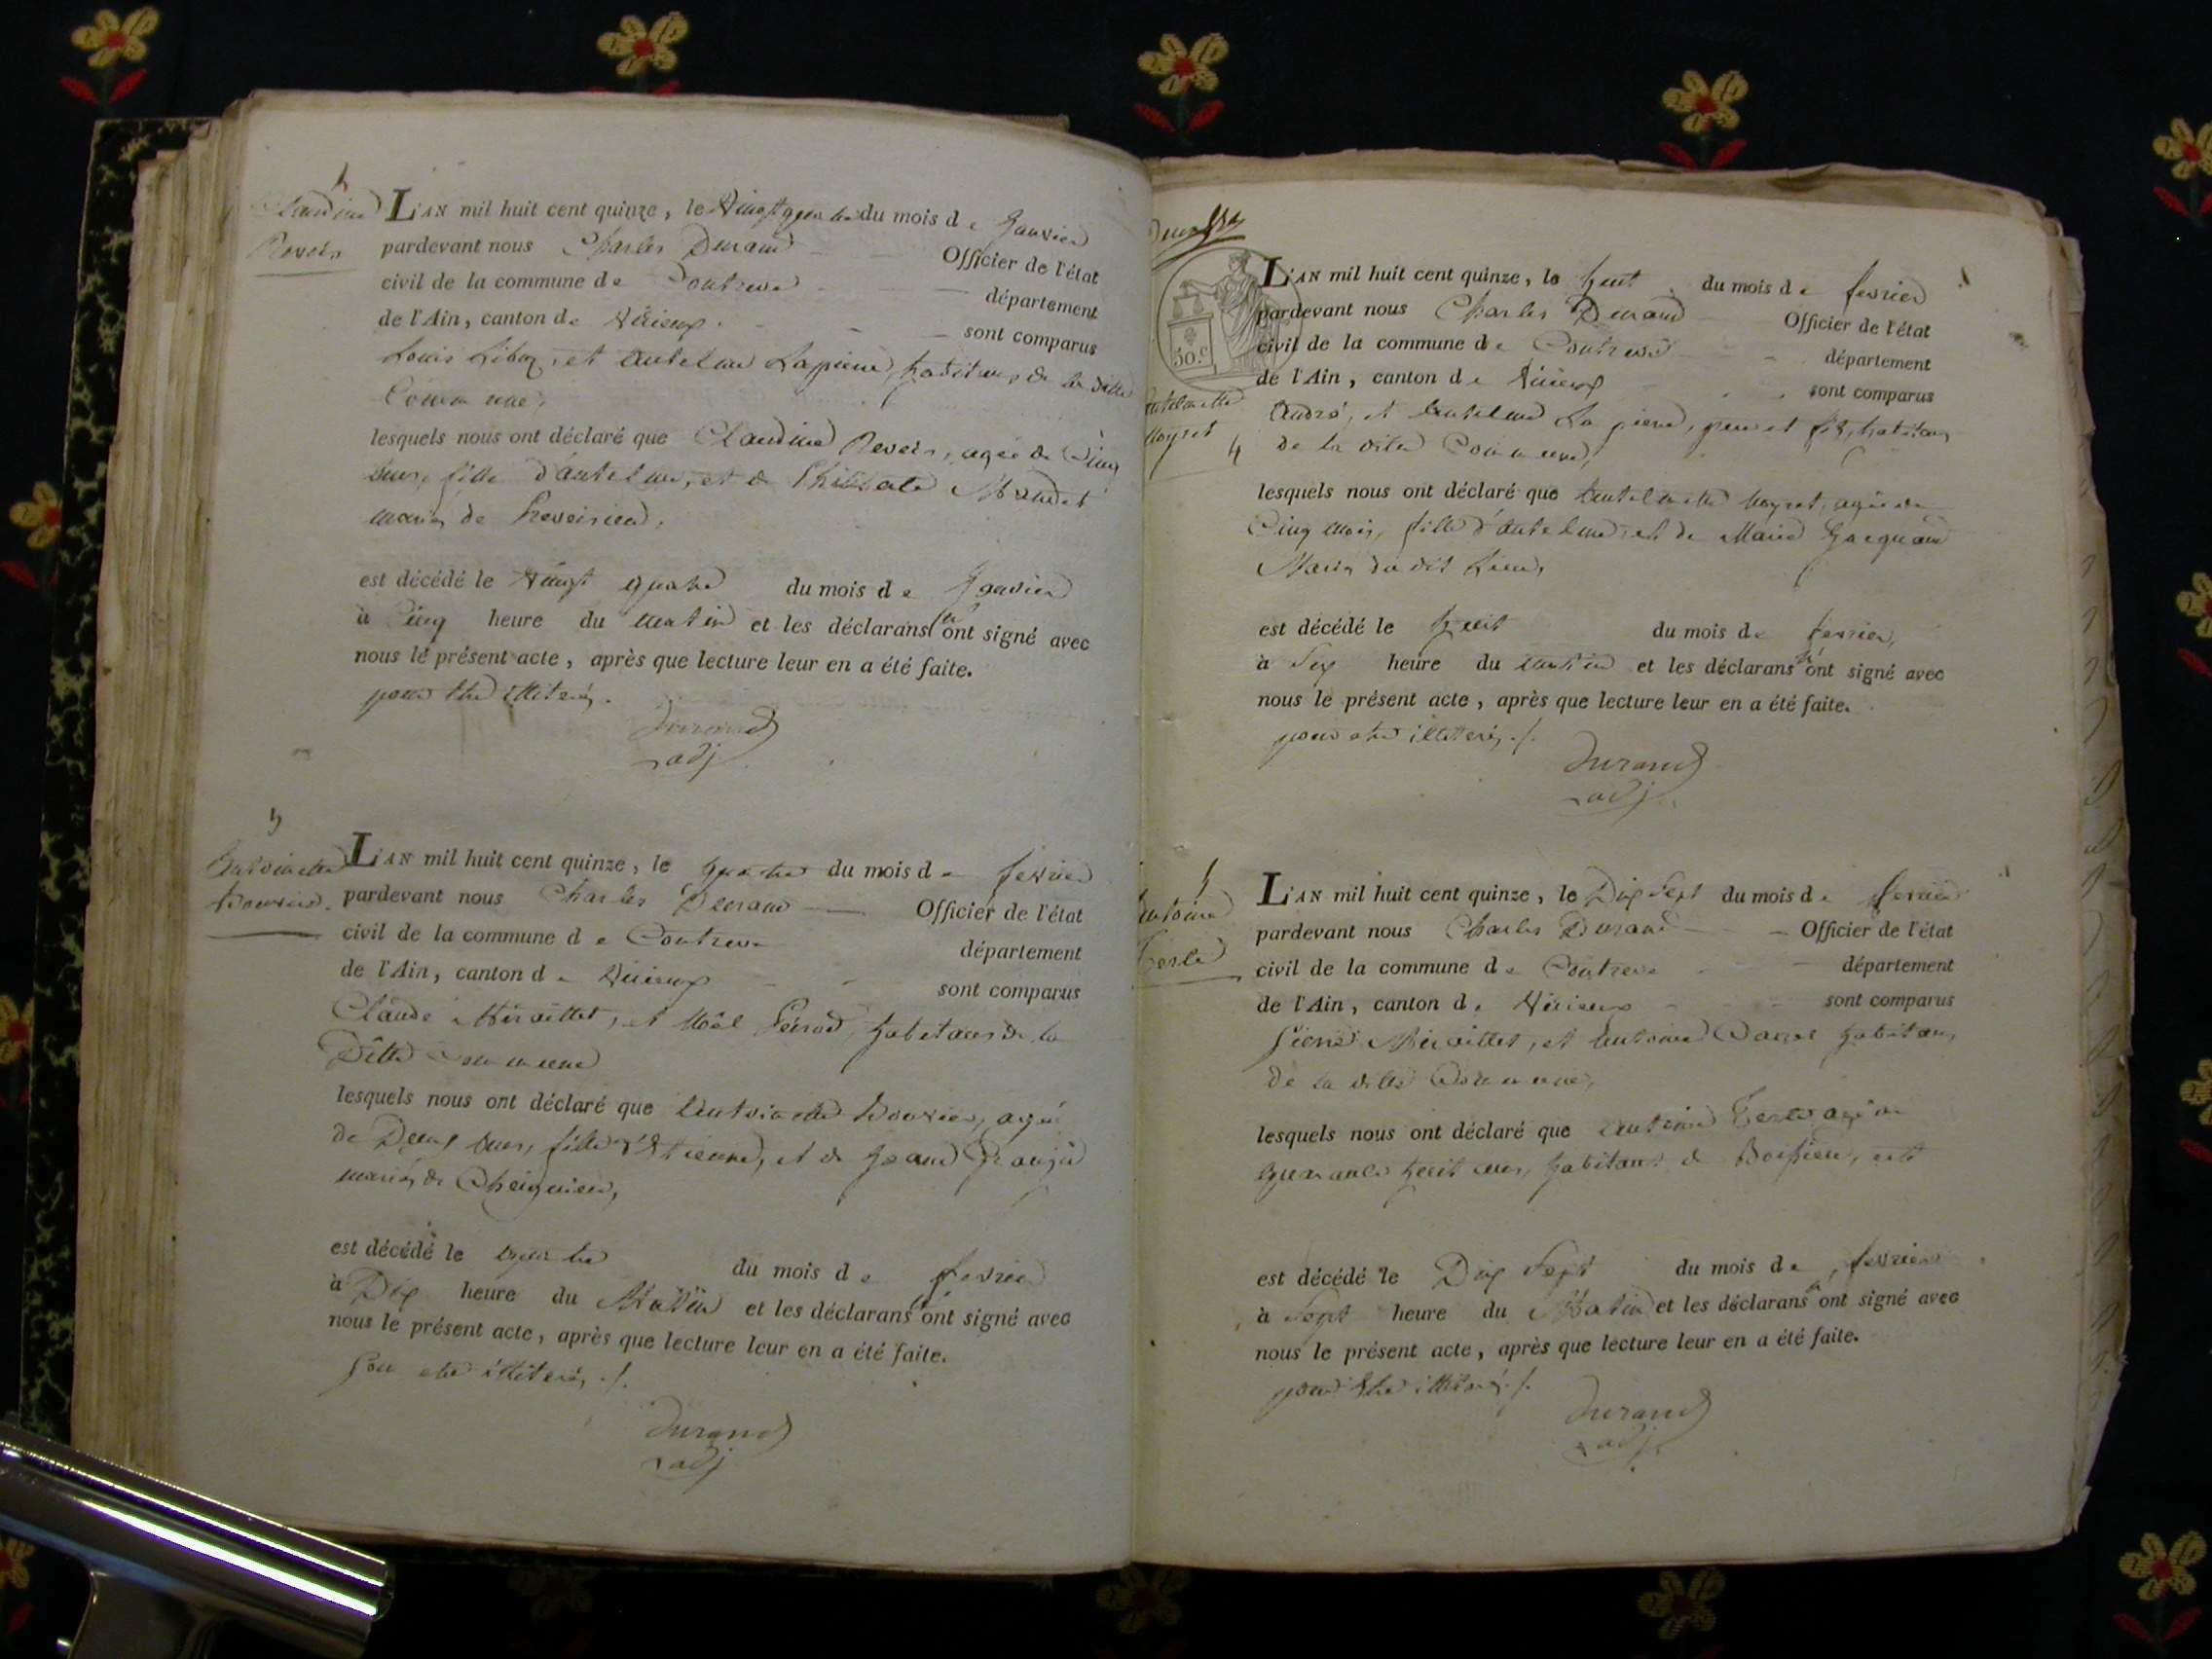 Claudine
L'AN mil huit cent quinze, le Vingt quatre du mois de Janvier
pardevant nous Charles Durand Officier de l'état
civil de la commune de Contrevo département
de l'Ain, canton de Virieux sont comparus
Louis et Antelme Lapierre, habitans de la ditte
Commune,
lesquels nous ont déclaré que Claudine agée de Cinq
ans, fille d'antelme, et de
mariés de
est décédé le Vingt quatre du mois de Janvier
à Cinq heure du matin et les déclarans n'ont signé avec
nous le présent acte, après que lecture leur en a été faite.
pour être illiterés.
Durand
adj
Antoinette
Bouvier
L'AN mil huit cent quinze, le quatre du mois de fevrier
pardevant nous Charles Durand Officier de l'état
civil de la commune de Contrevo département
de l'Ain, canton de Virieux sont comparus
Claude Miraillet, et habitans de la
Ditte Commune
lesquels nous ont déclaré que Antoinette Bouvier, agée
de Deux ans, fille d'Etienne, et de
mariés de
est décédé le quatre du mois de fevrier
à Dix heure du Matin et les déclarans n'ont signé avec
nous le présent acte, après que lecture leur en a été faite.
Pour etre illiterés ./.
Durand
adj
30.c
Antelmette
4
L'AN mil huit cent quinze, le huit du mois de fevrier
pardevant nous Charles Durand Officier de l'état
civil de la commune de Contrevo département
de l'Ain, canton de Virieux sont comparus
André, et Antelme La pierre, pere et fils, habitans
de la dite Commune,
lesquels nous ont déclaré que Antelmette agée de
Cinq mois, fille d'antelme et de Marie
Mariés du dit lieu,
est décédé le huit du mois de fevrier,
à Six heure du matin et les déclarans n'ont signé avec
nous le présent acte, après que lecture leur en a été faite.
pour etre illiterés ./.
Durand
adj
5
Antoine
L'AN mil huit cent quinze, le Dix Sept du mois de fevrier
pardevant nous Charles Durand Officier de l'état
civil de la commune de Contrevo département
de l'Ain, canton de Virieux sont comparus
Pierre Miraillet, et Antoine habitans
de la ditte Commune,
lesquels nous ont déclaré que Antoine agé de
quarante huit ans, habitant de
est décédé le Dix Sept du mois de fevrier
à Sept heure du Matin et les déclarans n'ont signé avec
nous le présent acte, après que lecture leur en a été faite.
pour être illiterés ./.
Durand
adj